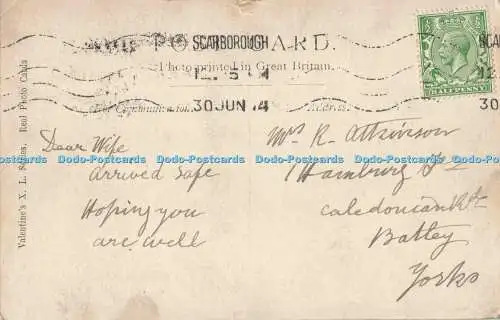 POST CARD.
SCARBOROUGH
Photo printed in Great Britain.
12.15 AM
30 JUN 14
For Communication.
Address.
HALFPENNY
SCAR
12
30
Valentine's X. L. Series. Real Photo Cards
Dear Wife
arrived safe
Hoping you
are well
Mrs R. Atkinson
1 Hamburg St
Caledonian Rd
Batley
Yorks
Dodo-Postcards Dodo-Postcards Dodo-Postcards Dodo-Postcards Dodo-Postcards Dodo-Postcards